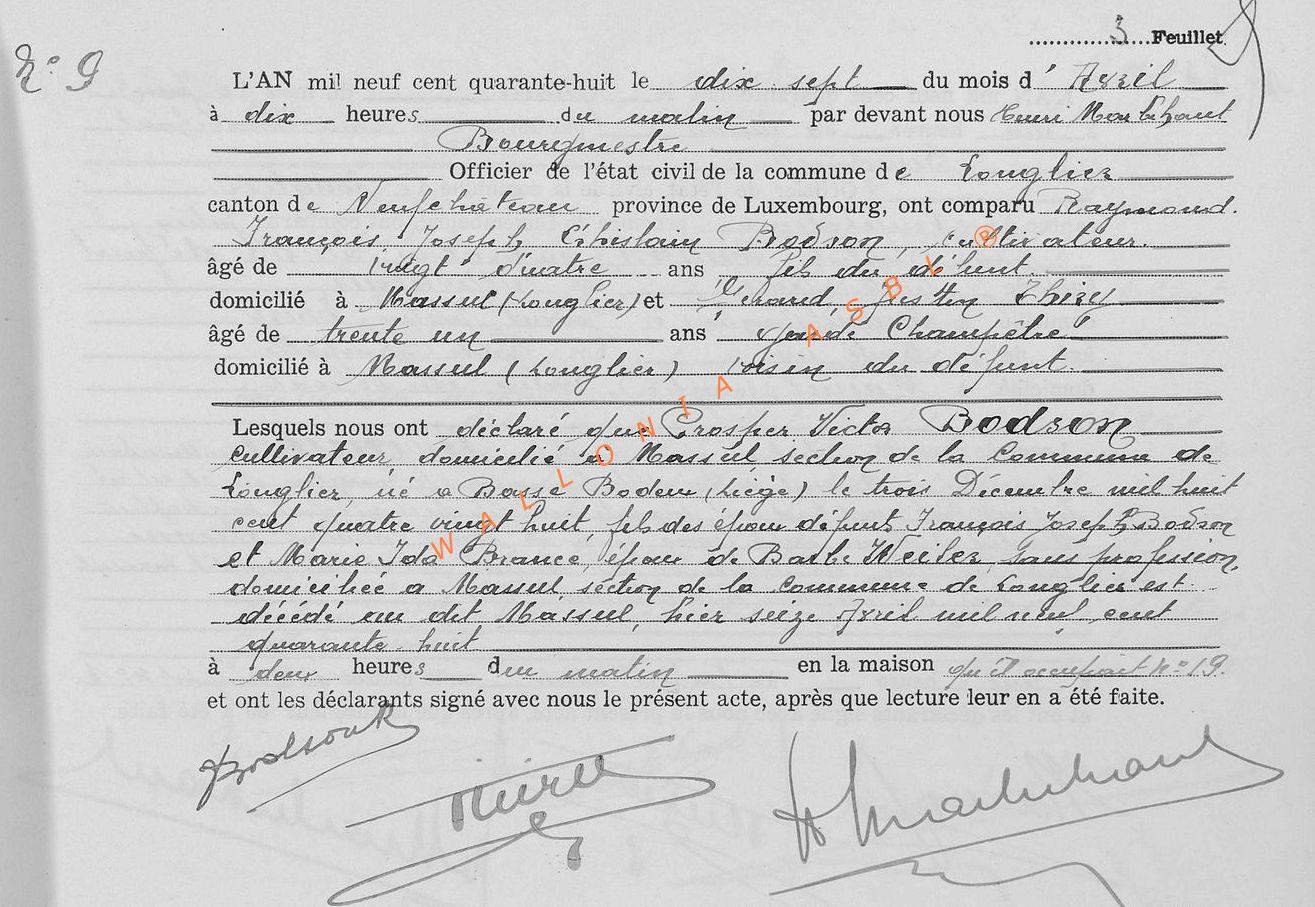 3 Feuillet
N° 9
L'AN mil neuf cent quarante-huit le dix sept du mois d' Avril
à dix heures du matin par devant nous Henri Marlehant
Bourgmestre
Officier de l'état civil de la commune de Longlier
canton de Neufchâteau province de Luxembourg, ont comparu Raymond.
François, Joseph, Ghislain Bodson, cultivateur.
âgé de vingt quatre ans fils du défunt.
domicilié à Massul (Longlier) et Gérard, Justin Thiry
âgé de trente un ans garde Champêtre
domicilié à Massul (Longlier) voisin du défunt.
Lesquels nous ont déclaré que Prosper Victor Bodson
cultivateur, domicilié a Massul section de la Commune de
Longlier, né a Basse Bodeux (Liège) le trois Décembre mil huit
cent quatre vingt huit, fils des époux défunts François Joseph Bodson
et Marie Ida Brance, époux de Barbe Weiler, sans profession,
domiciliée a Massul, section de la Commune de Longlier est
décédé au dit Massul, hier seize Avril mil neuf cent
quarante huit
à deux heures du matin en la maison qu'il occupait N° 19.
et ont les déclarants signé avec nous le présent acte, après que lecture leur en a été faite.
Bodson R
WALLONIA ASBL ®